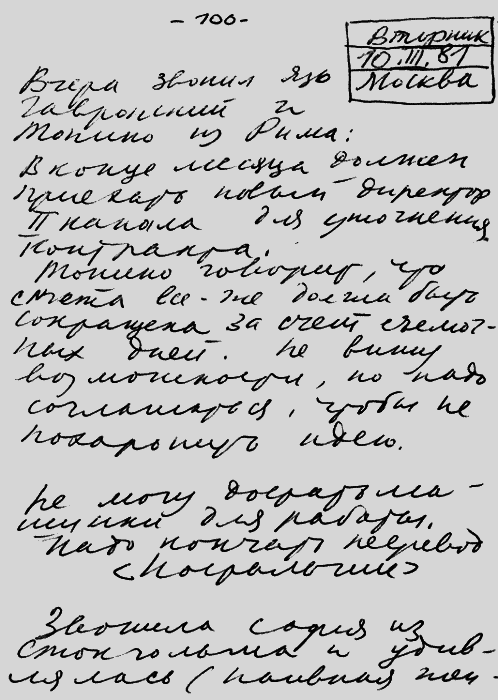 - 100 -
Вторник
10.III.81
Москва
Вчера звонил
Гавронский и
Тонино из Рима:
В конце месяца должен
приехать новый директор
II канала для уточнения
контракта.
Тонино говорит, что
смета все-же должна быть
сокращена за счет съемоч-
ных дней. Не вижу
возможности, но надо
соглашаться, чтобы не
похоронить идею.
Не могу достать ма-
шинки для работы.
Надо кончать перевод
<Ностальгии>
Звонила София из
Стокгольма и удив-
лялась (наивная жен-